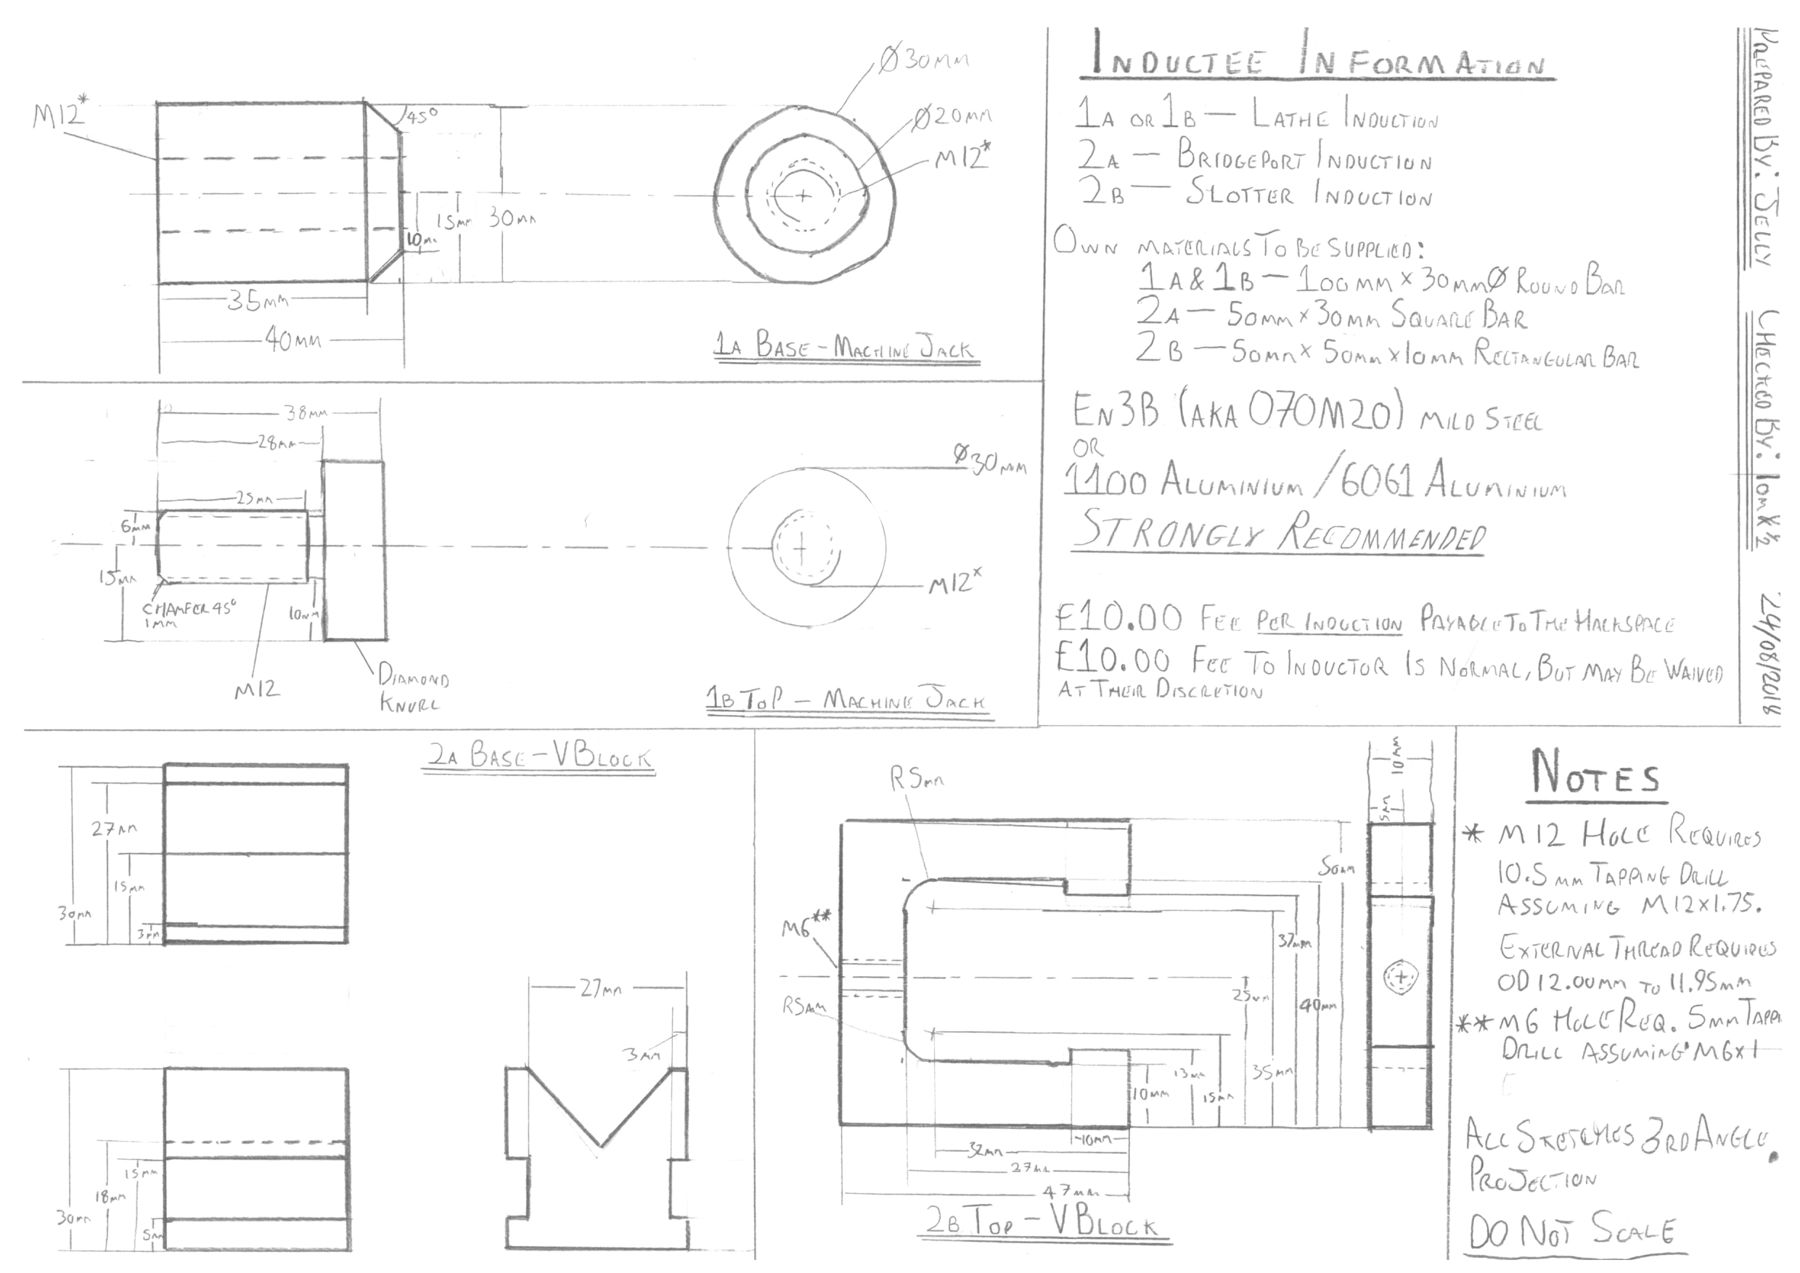 M12*
45°
15mm
30mm
10mm
35mm
40mm
Ø30mm
Ø20mm
M12*
1A BASE – MACHINE JACK
38mm
28mm
25mm
6mm
15mm
CHAMFER 45°
1mm
10mm
M12
DIAMOND
KNURL
Ø30mm
M12*
1B TOP – MACHINE JACK
INDUCTEE INFORMATION
1A OR 1B — LATHE INDUCTION
2A — BRIDGEPORT INDUCTION
2B — SLOTTER INDUCTION
OWN MATERIALS TO BE SUPPLIED:
1A & 1B — 100mm × 30mmØ ROUND BAR
2A — 50mm × 30mm SQUARE BAR
2B — 50mm × 50mm × 10mm RECTANGULAR BAR
EN3B (AKA 070M20) MILD STEEL
OR
1100 ALUMINIUM / 6061 ALUMINIUM
STRONGLY RECOMMENDED
£10.00 FEE PER INDUCTION PAYABLE TO THE HACKSPACE
£10.00 FEE TO INDUCTOR IS NORMAL, BUT MAY BE WAIVED
AT THEIR DISCRETION
PREPARED BY: JELLY CHECKED BY: 24/08/2018
2A BASE – V BLOCK
27mm
15mm
30mm
3mm
27mm
3mm
15mm
18mm
30mm
5mm
R5mm
M6**
R5mm
50mm
37mm
25mm
40mm
35mm
13mm
10mm
15mm
10mm
32mm
27mm
47mm
2B TOP – V BLOCK
10mm
5mm
NOTES
* M12 HOLE REQUIRES
10.5mm TAPPING DRILL
ASSUMING M12×1.75.
EXTERNAL THREAD REQUIRES
OD 12.00mm TO 11.95mm
** M6 HOLE REQ. 5mm TAPPI
DRILL ASSUMING M6×1
ALL SKETCHES 3RD ANGLE
PROJECTION.
DO NOT SCALE